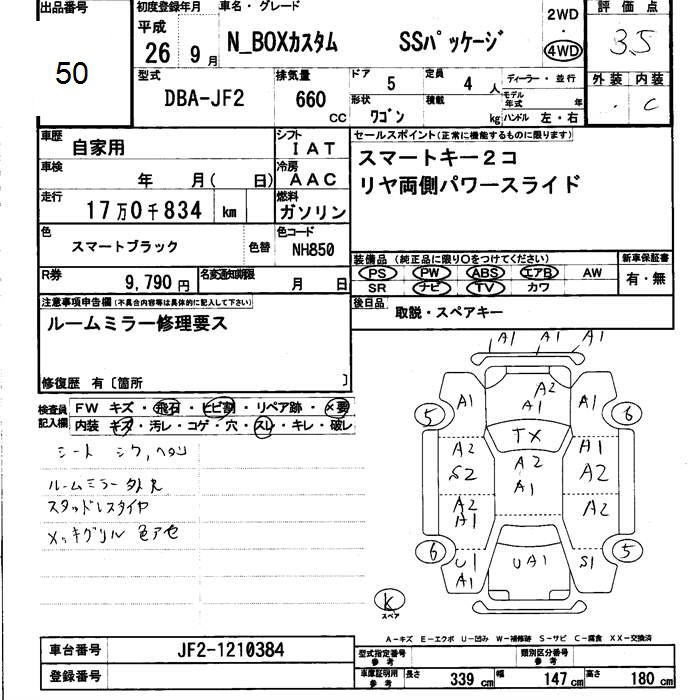 出品番号
50
初度登録年月
平成
26 9月
車名・グレード
N_BOXカスタム SSパッケージ
2WD
・
4WD
評価点
3.5
外装 内装
・ C
型式
DBA-JF2
排気量
660
CC
ドア 5
定員 4 人
ディーラー・並行
形状 ワゴン
積載 kg
モデル年式 年
ハンドル 左・右
車歴
自家用
シフト
IAT
車検
年 月( 日)
冷房
AAC
走行
17万0千834 km
燃料
ガソリン
色
スマートブラック
色替
色コード
NH850
R券
9,790円
名変通知期限
月 日
セールスポイント(正常に機能するものに限ります)
スマートキー2コ
リヤ両側パワースライド
装備品(純正品に限り○をつけてください)
PS PW ABS エアB AW
SR ナビ TV カワ
新車保証書
有・無
後日品
取説・スペアキー
注意事項申告欄(不具合内容等は具体的に記入して下さい)
ルームミラー修理要ス
修復歴 有〔箇所 〕
検査員記入欄
FW キズ・飛石・ヒビ割・リペア跡・×要
内装 キズ・汚レ・コゲ・穴・スレ・キレ・破レ
シート シワ,ヘタリ
ルームミラー外れ
スタッドレスタイヤ
メッキグリル 色アセ
A1 A1 A1
A1 A2 A1 A1
5 6
TX
A2 S2 A2 A1 A1 A2
A2 A1 A2
6 5
U1 A1 UA1 S1
K
スペア
A-キズ E-エクボ U-凹み W-補修跡 S-サビ C-腐食 XX-交換済
車台番号
JF2-1210384
登録番号
型式指定番号
参考
類別区分番号
参考
車庫証明用
参考
長さ 339 cm
幅 147 cm
高さ 180 cm